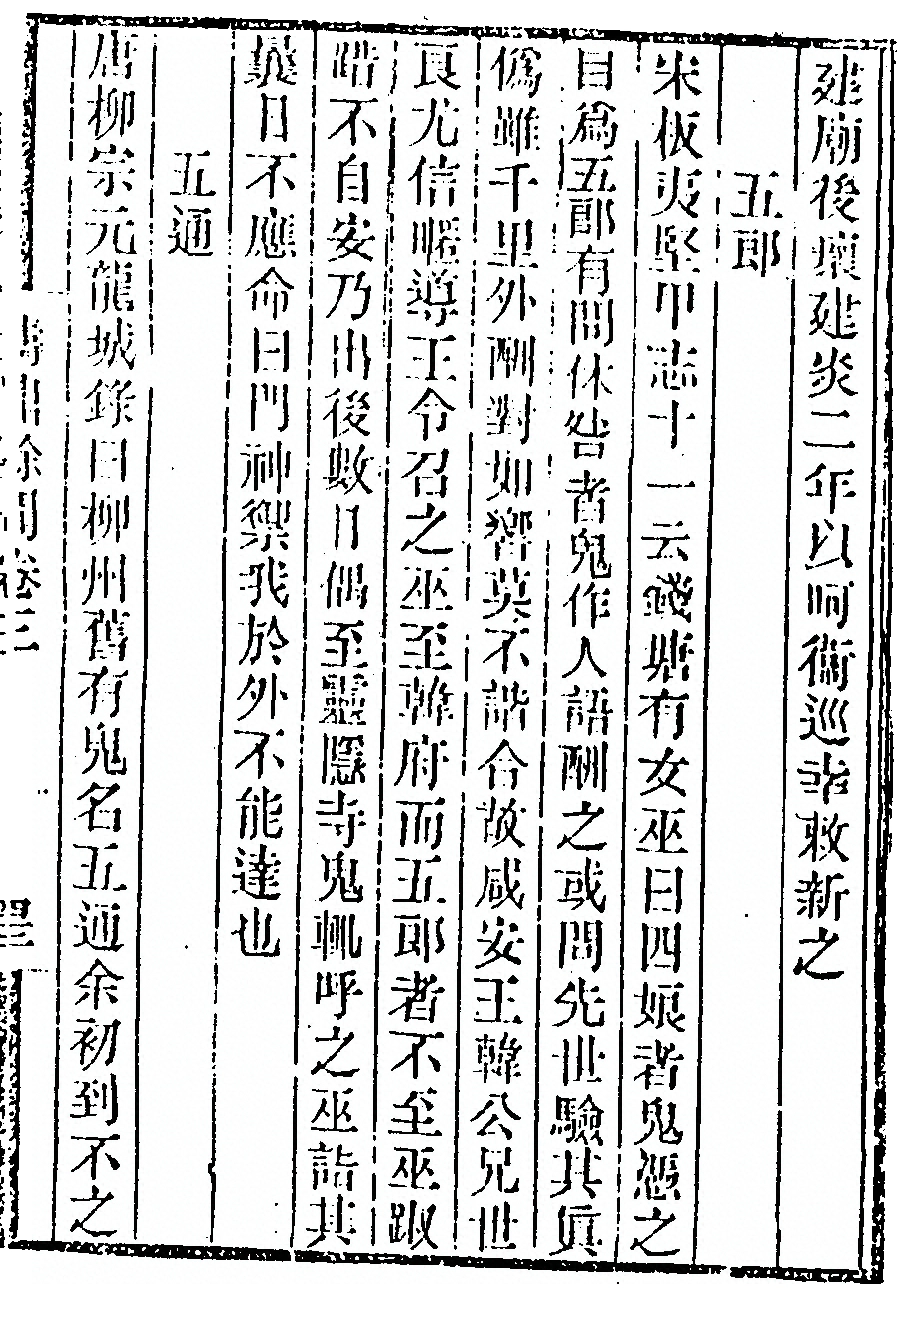 建廟後壞建炎二年以呵衞巡幸敕新之
五郎
宋板夷堅甲志十一云錢塘有女巫曰四娘者鬼憑之
目爲五郎有問休咎者鬼作人語酬之或問先世驗其眞
僞雖千里外酬對如響莫不諧合故咸安王韓公兄世
良尤信暱導王令召之巫至韓府而五郎者不至巫踧
踖不自安乃出後數日偶至靈隱寺鬼輒呼之巫詰其
曩日不應命曰門神禦我於外不能達也
五通
唐柳宗元龍城錄曰柳州舊有鬼名五通余初到不之
餘聞卷三